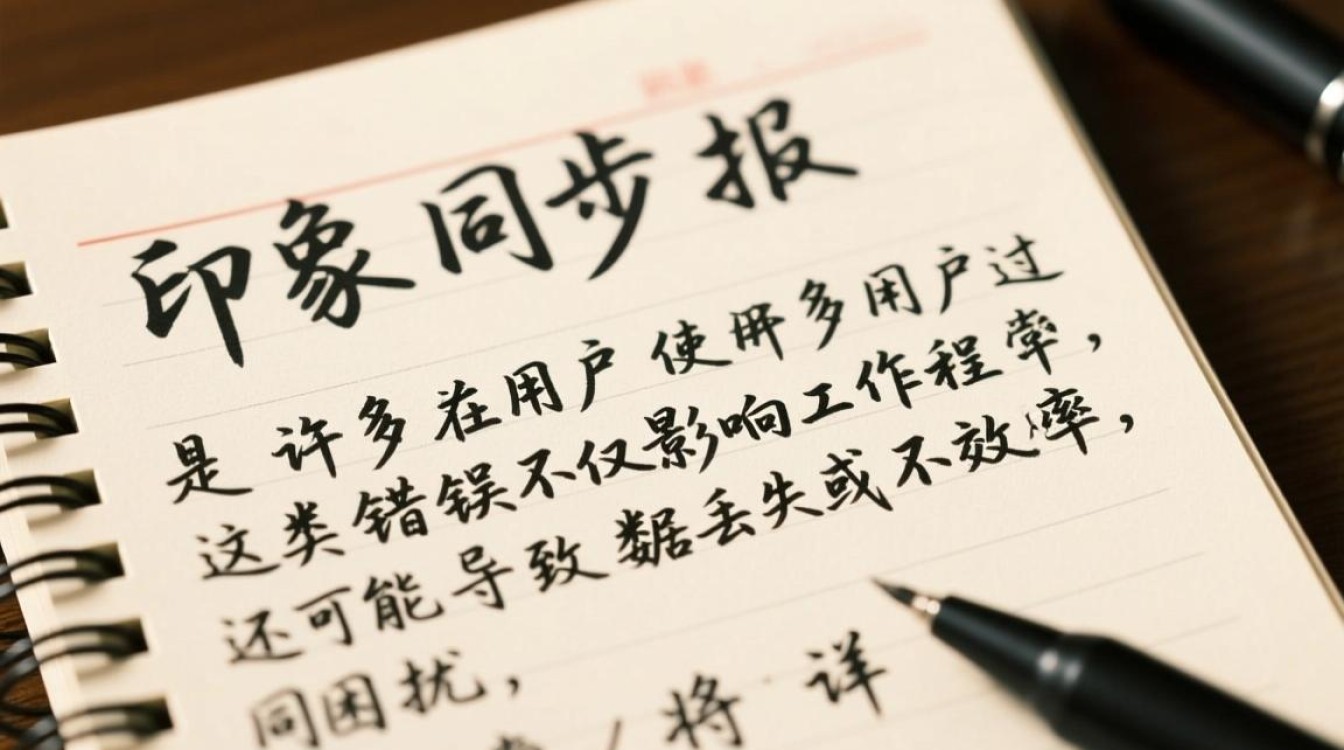 印象同步报
是许多在用户使用多用户过
这类错误不仅影响工作程率，
还可能导致数据丢失或不效率，
同困扰，
将详